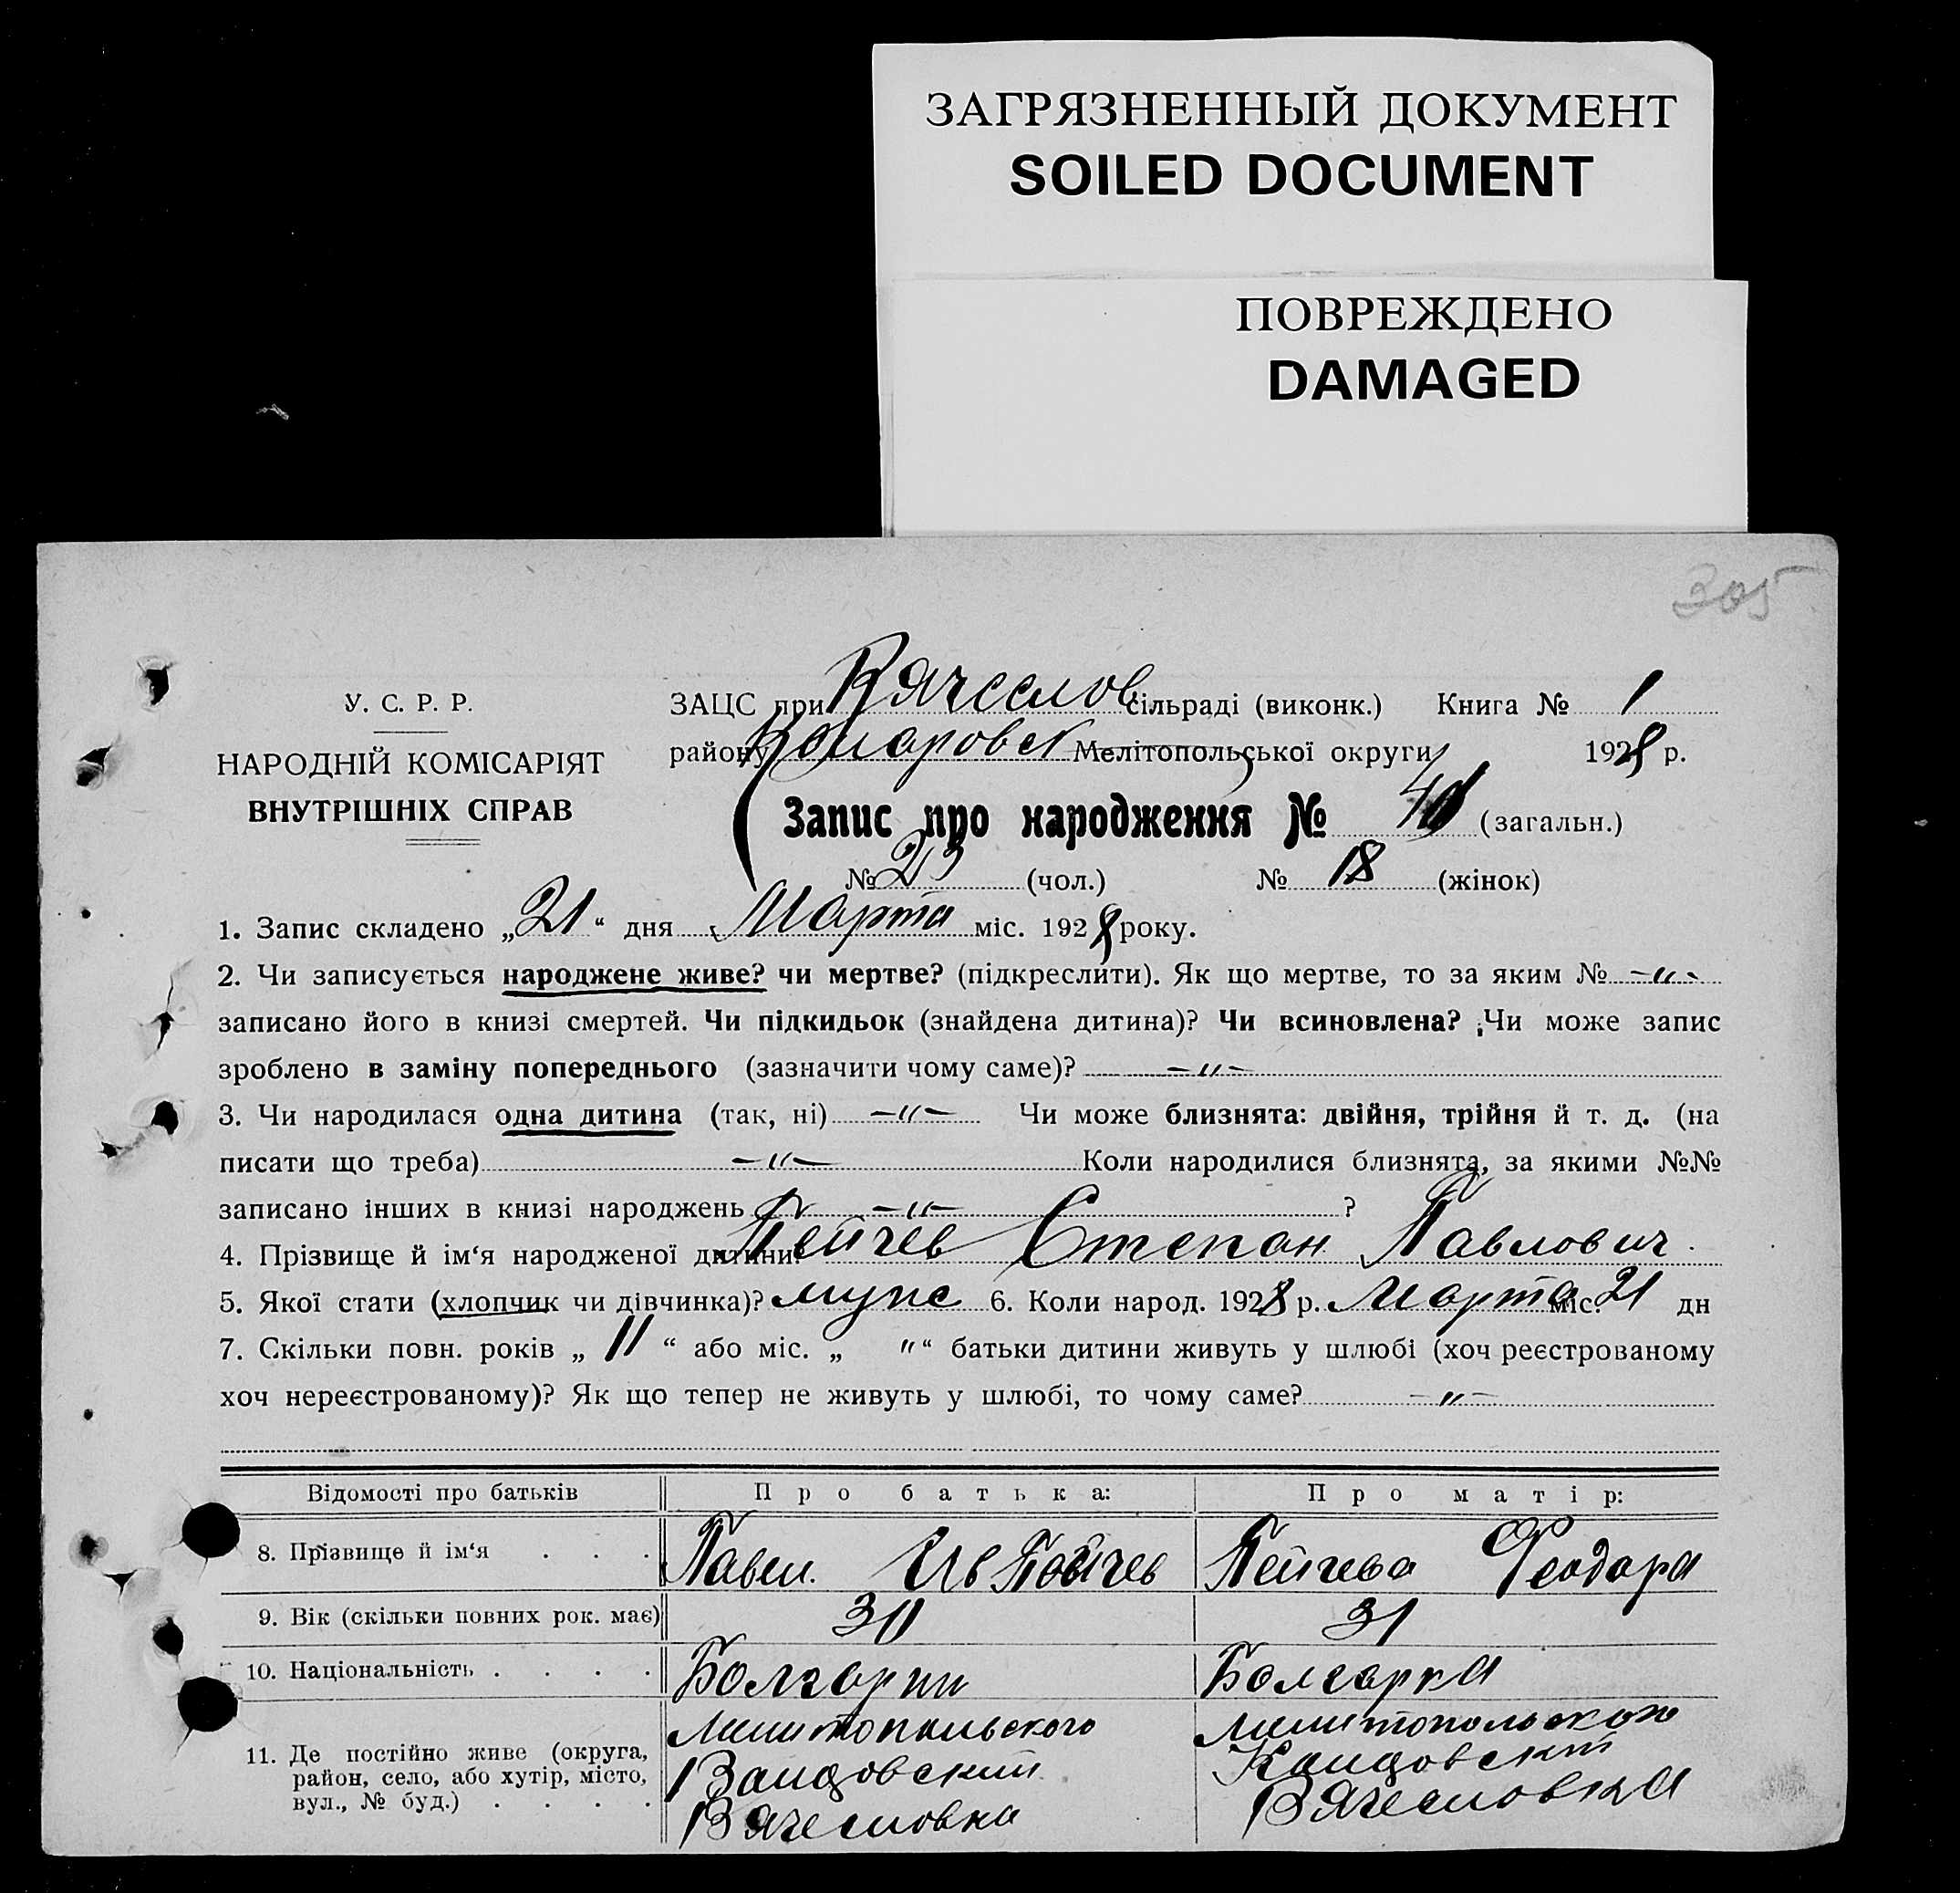 ЗАГРЯЗНЕННЫЙ ДОКУМЕНТ
SOILED DOCUMENT
ПОВРЕЖДЕНО
DAMAGED
305
У. С. Р. Р.
НАРОДНІЙ КОМІСАРІЯТ
ВНУТРІШНІХ СПРАВ
ЗАЦС при Вячеслов сільраді (виконк.) Книга № 1
району Мелітопольської округи 1928 р.
Запис про народження № (загальн.)
№ 23 (чол.) № 18 (жінок)
1. Запис складено „21“ дня Марта міс. 1928 року.
2. Чи записується народжене живе? чи мертве? (підкреслити). Як що мертве, то за яким № -„-
записано його в книзі смертей. Чи підкидьок (знайдена дитина)? Чи всиновлена? Чи може запис
зроблено в заміну попереднього (зазначити чому саме)? -„-
3. Чи народилася одна дитина (так, ні) -„- Чи може близнята: двійня, трійня й т. д. (на
писати що треба) -„- Коли народилися близнята, за якими №№
записано інших в книзі народжень -„- ?
4. Прізвище й ім‘я народженої дитини? Пейчев Степан Павлович.
5. Якої стати (хлопчик чи дівчинка)? муже 6. Коли народ. 1928 р. Марта міс. 21 дн
7. Скільки повн. років „ 11 “ або міс. „ "“ батьки дитини живуть у шлюбі (хоч реєстрованому
хоч нереєстрованому)? Як що тепер не живуть у шлюбі, то чому саме? -„-
Відомості про батьків Про батька: Про матір:
8. Прізвище й ім‘я . . . Павел. Ив Пейчев Пейчева Феодора
9. Вік (скільки повних рок. має) 30 31
10. Національність . . . . Болгарин Болгарка
11. Де постійно живе (округа, Мелитопольского Мелитопольского
район, село, або хутір, місто,
вул., № буд.) . . . . Вячесловка Вячесловка